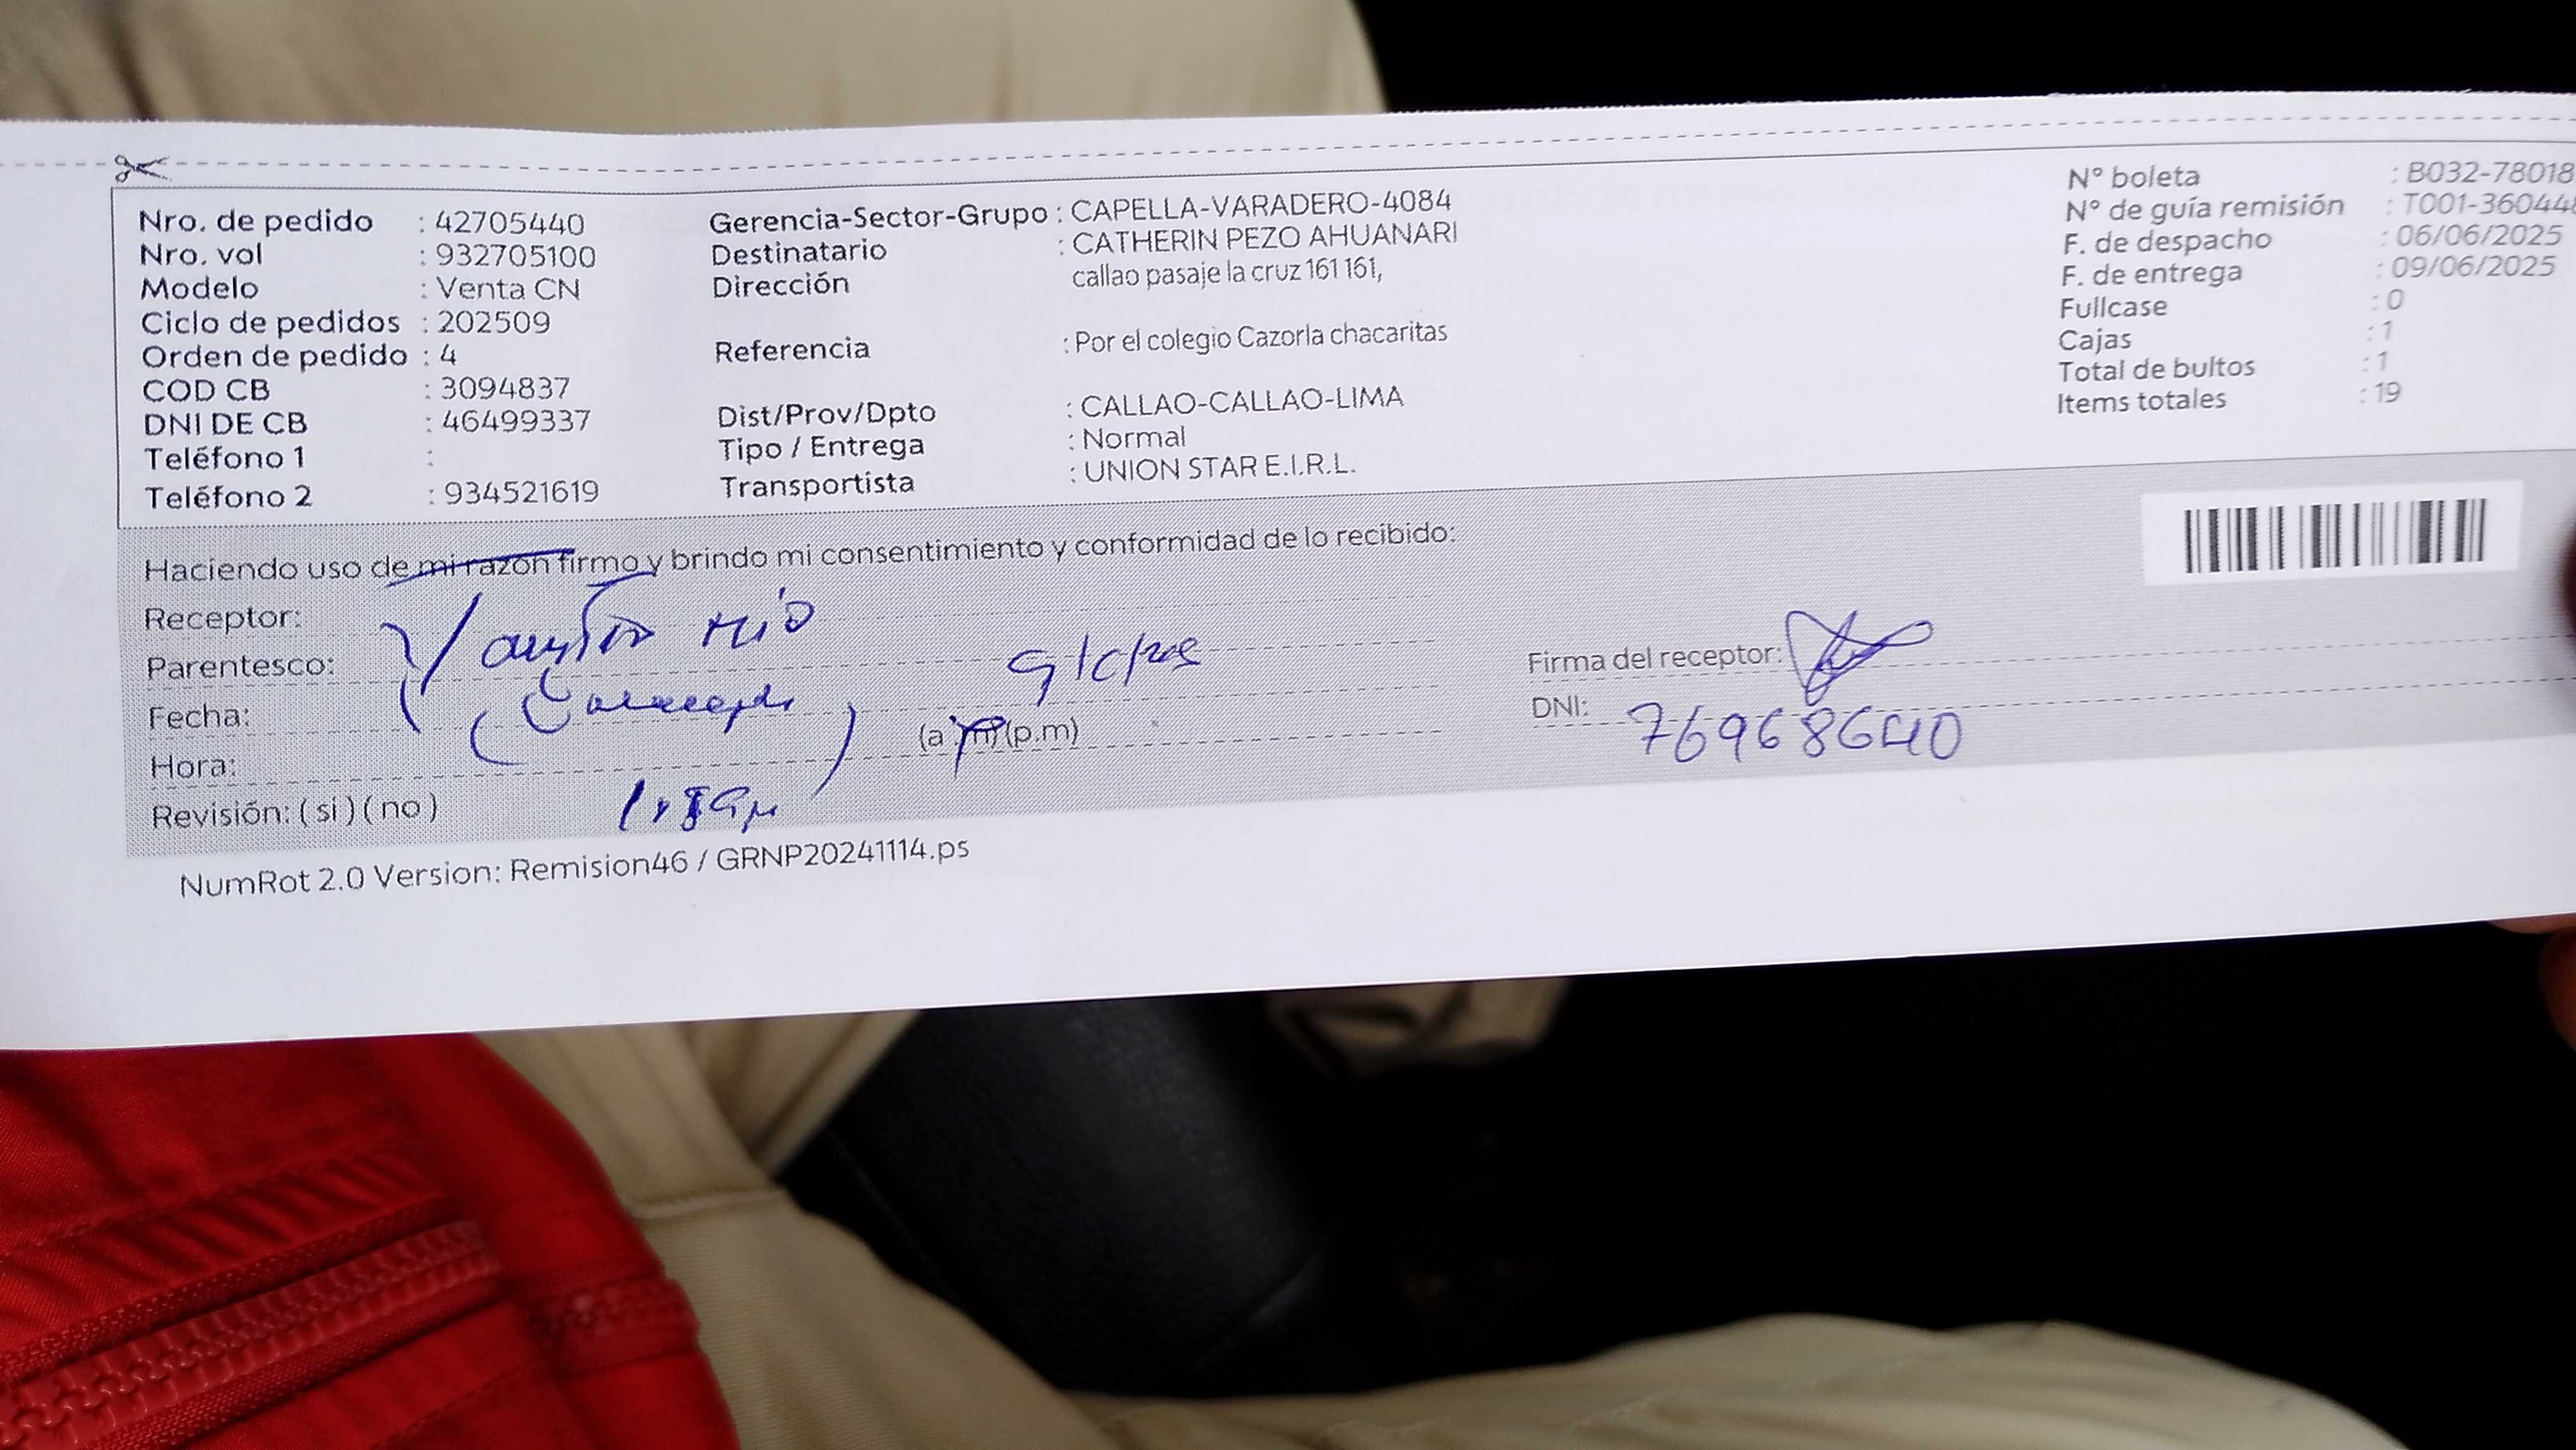 Nro. de pedido : 42705440
Nro. vol : 932705100
Modelo : Venta CN
Ciclo de pedidos : 202509
Orden de pedido : 4
COD CB : 3094837
DNI DE CB : 46499337
Teléfono 1 :
Teléfono 2 : 934521619
Gerencia-Sector-Grupo : CAPELLA-VARADERO-4084
Destinatario : CATHERIN PEZO AHUANARI
Dirección callao pasaje la cruz 161 161,
Referencia : Por el colegio Cazorla chacaritas
Dist/Prov/Dpto : CALLAO-CALLAO-LIMA
Tipo / Entrega : Normal
Transportista : UNION STAR E.I.R.L.
N° boleta : B032-78018
N° de guía remisión : T001-36044
F. de despacho : 06/06/2025
F. de entrega : 09/06/2025
Fullcase : 0
Cajas : 1
Total de bultos : 1
Items totales : 19
Haciendo uso de mi razón firmo y brindo mi consentimiento y conformidad de lo recibido:
Receptor:
Parentesco:
Fecha:
Hora: (a.m) (p.m)
Revisión: ( si ) ( no )
Firma del receptor:
DNI: 76968640
NumRot 2.0 Version: Remision46 / GRNP20241114.ps